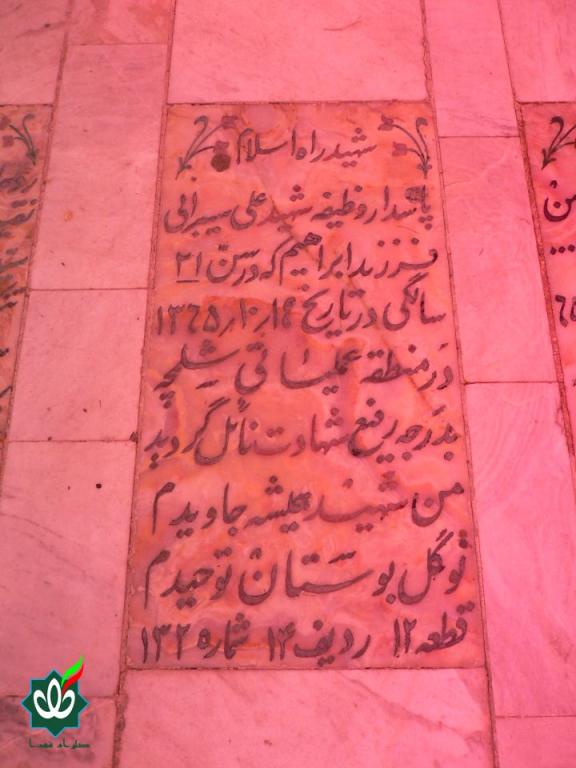 شهید راه اسلام
پاسدار وظیفه شهید علی سیرانی
فرزند ابراهیم که در سن ۲۱
سالگی در تاریخ ۱۳۶۵٫۱۰٫۱۴
در منطقه عملیاتی شلمچه
بدرجه رفیع شهادت نائل گردید
من شهید همیشه جاویدم
نوگل بوستان توحیدم
قطعه ۱۲ ردیف ۱۴ شماره ۱۳۲